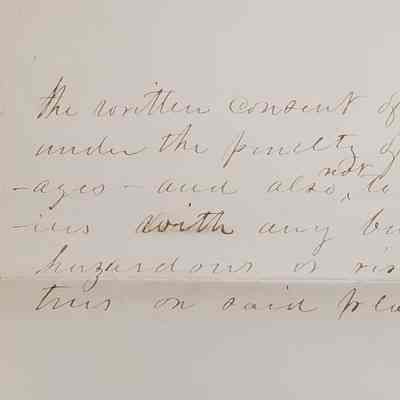 the written consent of
under the penelty of
-ages - and also not to
-ins with any bu
hazardous or ris
trus on said pre